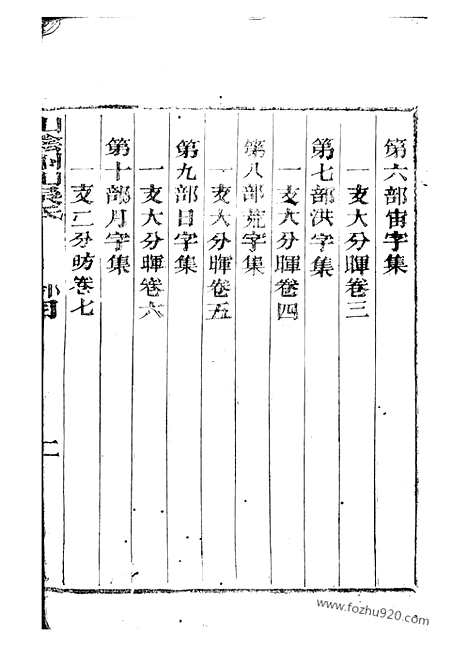 第六部宙字集
一支大分暉卷三
第七部洪字集
一支大分暉卷四
第八部荒字集
一支大分暉卷五
第九部日字集
一支大分暉卷六
第十部月字集
一支二分昉卷七
山陰州山吳氏
部目
二
www.fozhu920.com